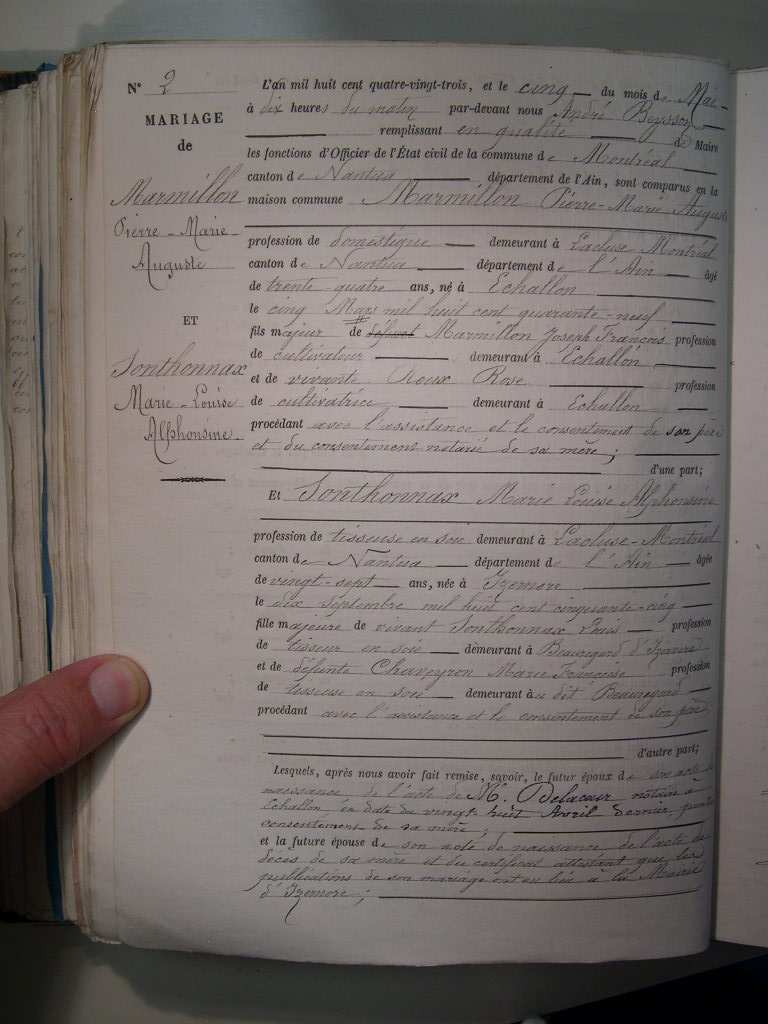 N° 2
MARIAGE
de
Marmillon
Pierre-Marie-
Auguste
ET
Sonthonnax
Marie-Louise
Alphonsine.
L'an mil huit cent quatre-vingt-trois, et le cinq du mois de Mai
à dix heures du matin par-devant nous André Beysson
remplissant en qualité de Maire
les fonctions d'Officier de l'État civil de la commune de Montréal
canton de Nantua département de l'Ain, sont comparus en la
maison commune Marmillon Pierre-Marie-Auguste
profession de domestique demeurant à Lacluse-Montréal
canton de Nantua département de l'Ain âgé
de trente-quatre ans, né à Echallon
le cinq Mars mil huit cent quarante-neuf
fils majeur de défunt Marmillon Joseph François profession
de cultivateur demeurant à Echallon
et de vivante Roux Rose profession
de cultivatrice demeurant à Echallon
procédant avec l'assistance et le consentement de son père
et du consentement notarié de sa mère ;
d'une part;
Et Sonthonnax Marie Louise Alphonsine
profession de tisseuse en soie demeurant à Lacluse-Montréal
canton de Nantua département de l'Ain âgée
de vingt-sept ans, née à Izernore
le dix septembre mil huit cent cinquante-cinq
fille majeure de vivant Sonthonnax Louis profession
de tisseur en soie demeurant à Beauregard d'Izernore
et de défunte Chaveyron Marie Françoise profession
de tisseuse en soie demeurant au dit Beauregard
procédant avec l'assistance et le consentement de son père
d'autre part;
Lesquels, après nous avoir fait remise, savoir, le futur époux de son acte de
naissance de l'acte de M. Delacour notaire à
Echallon en date du vingt-huit Avril dernier portant
consentement de sa mère ;
et la future épouse de son acte de naissance de l'acte de
décès de sa mère et du certificat attestant que les
publications de son mariage ont eu lieu à la Mairie
d'Izernore ;